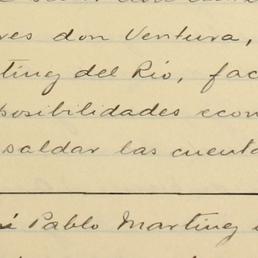 res don Ventura,
ting del Río, fac
posibilidades econ
saldar las cuenta
Pablo Marting